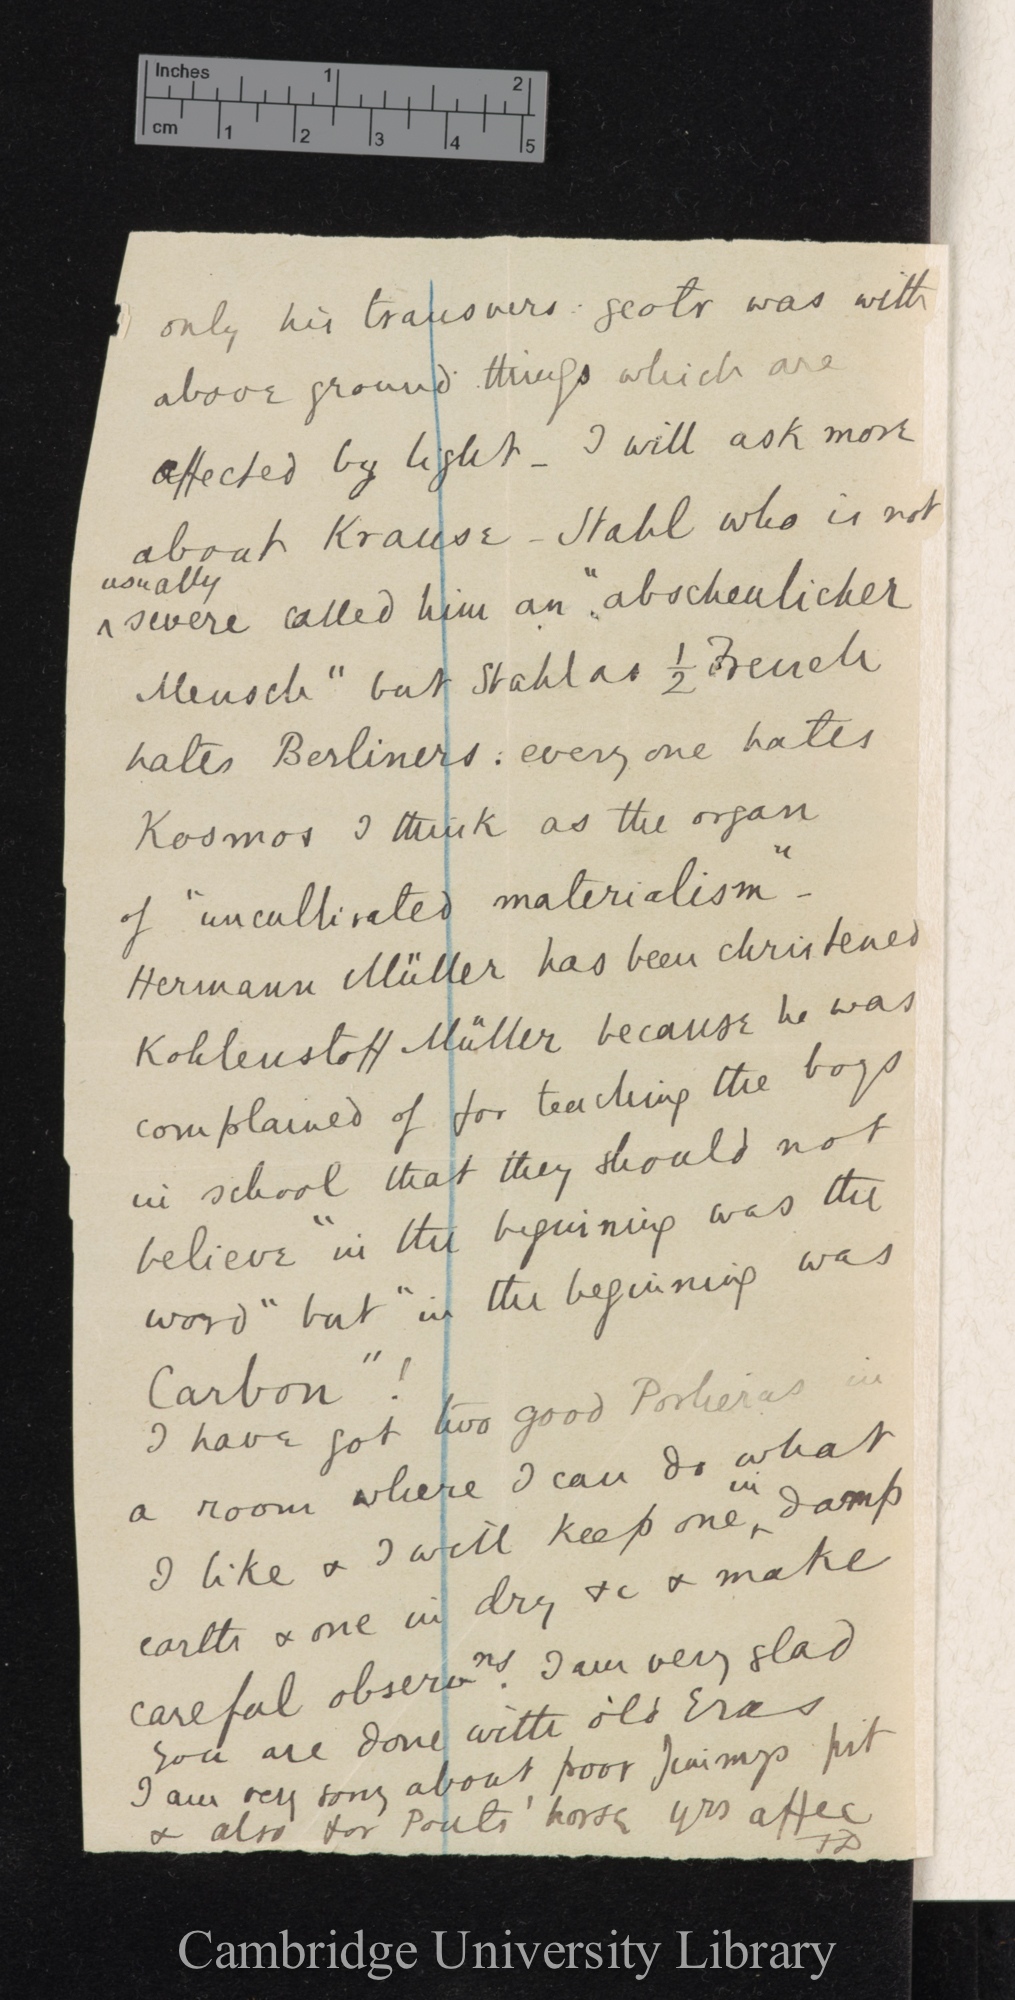 Inches 1 2
cm 1 2 3 4 5
only his transvers: geotr was with
above ground things which are
affected by light – I will ask more
about Krause – Stahl who is not
usually
^ severe called him an "abscheulicher
Mensch" but Stahl as ½ French
hates Berliners: everyone hates
Kosmos I think as the organ
of "uncultivated materialism" –
Hermann Müller has been christened
Kohlenstoff Müller because he was
complained of for teaching the boys
in school that they should not
believe "in the beginning was the
word" but "in the beginning was
Carbon"!
I have got two good Porlieras in
a room where I can do what
in
I like & I will keep one ^ damp
earth & one in dry &c & make
careful observns. I am very glad
you are done with old Eras
I am very sorry about poor Jimmys pit
& also for Pouts' horse yrs affec
FD
Cambridge University Library